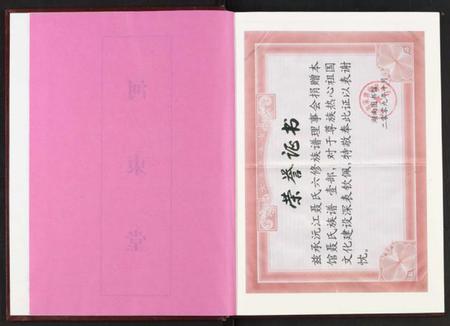 荣誉证书
兹承沅江聂氏六修族谱理事会捐赠本
馆聂氏族谱 壹部，对于尊族热心祖国
文化建设深表钦佩，特敬奉此证以表谢
忱。
湖南图书馆
二零零九年十月